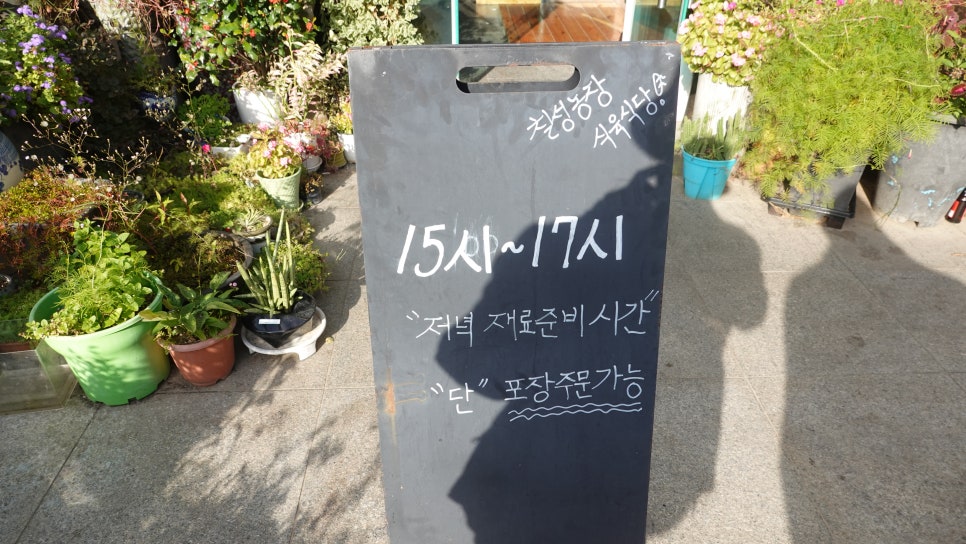 천성농장
식육식당
15시~17시
"저녁 재료준비시간"
"단" 포장주문가능